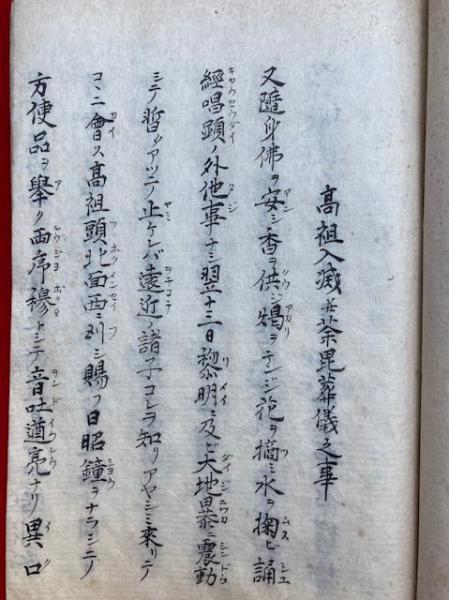 高祖入滅并荼毘葬儀之事
又隨身佛ヲ安シ香ヲ供シ燭ヲテンジ花ヲ摘ミ水ヲ掬ビ誦
經唱題ノ外他事ナシ翌十三日黎明ニ及ビ大地暴ニ震動
シテ暫クアツテ止ケレバ遠近ノ諸子コレヲ知リアヤシミ來リテ
コヽニ會ス高祖頭北面西ニシ賜フ日昭鐘ヲナラシ
方便品ヲ擧ク両序穆トシテ音吐遒亮ナリ異口